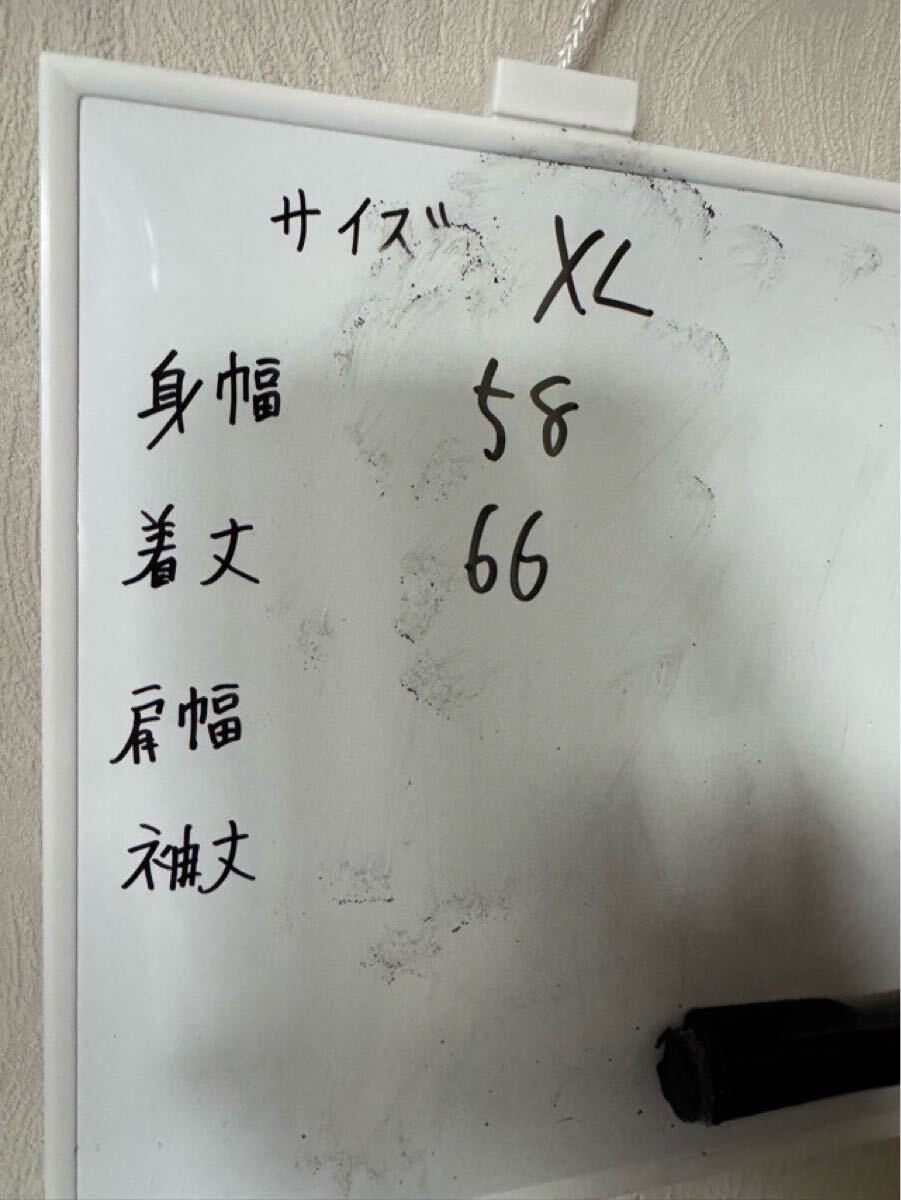 サイズ XL
身幅 58
着丈 66
肩幅
袖丈